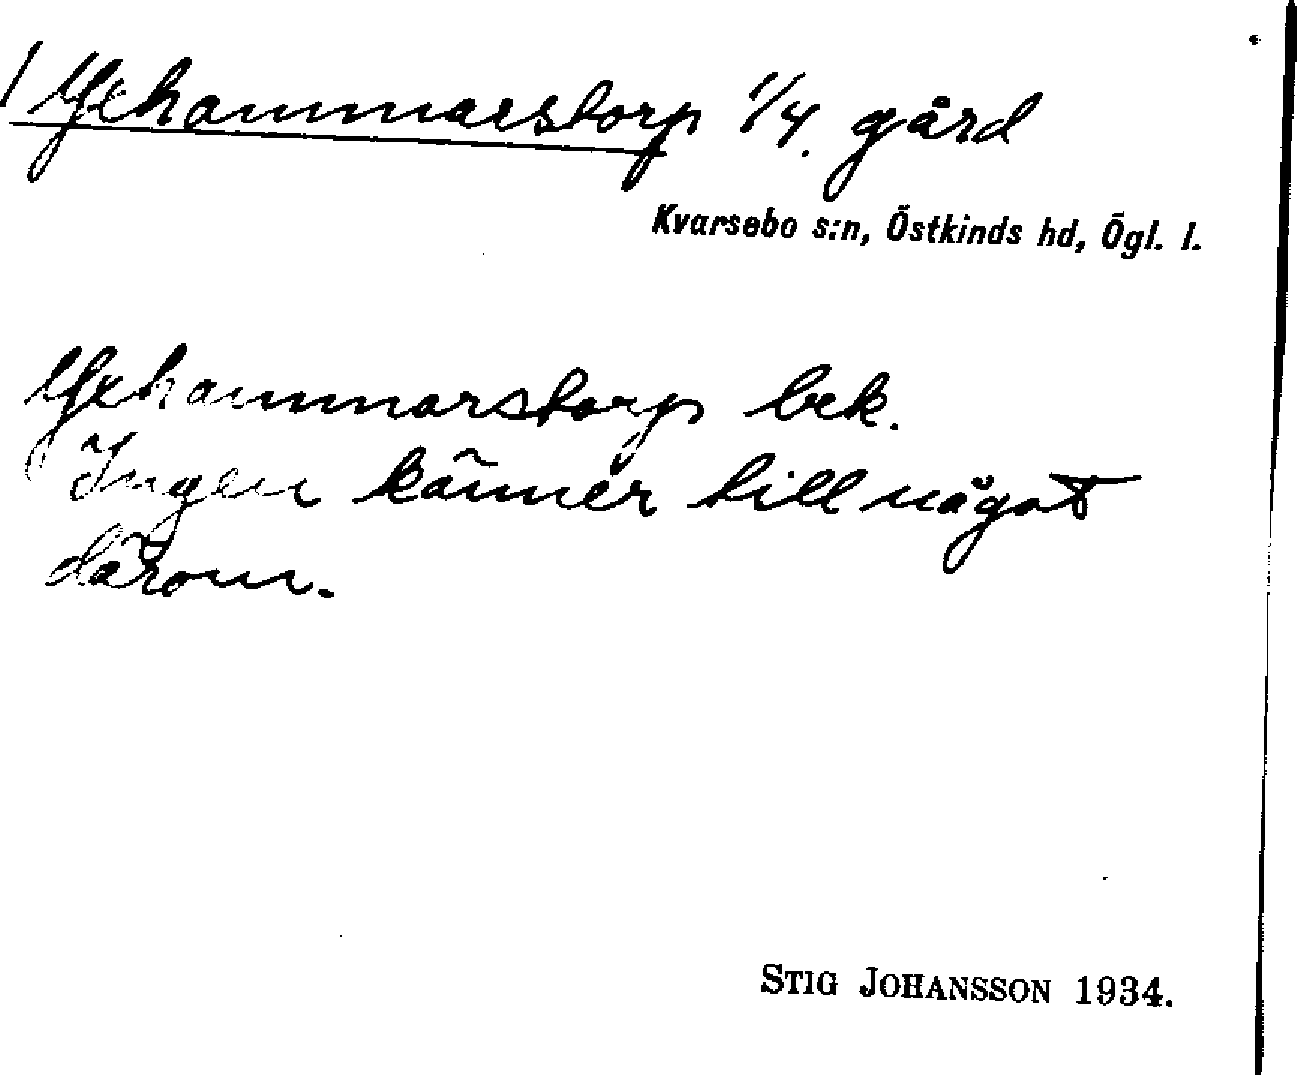 / Yxhammarstorp 1/4. gård
Kvarsebo s:n, Östkinds hd, Ögl. l.
Yxhammarstorp bek.
Ingen känner till något
därom.
STIG JOHANSSON 1934.